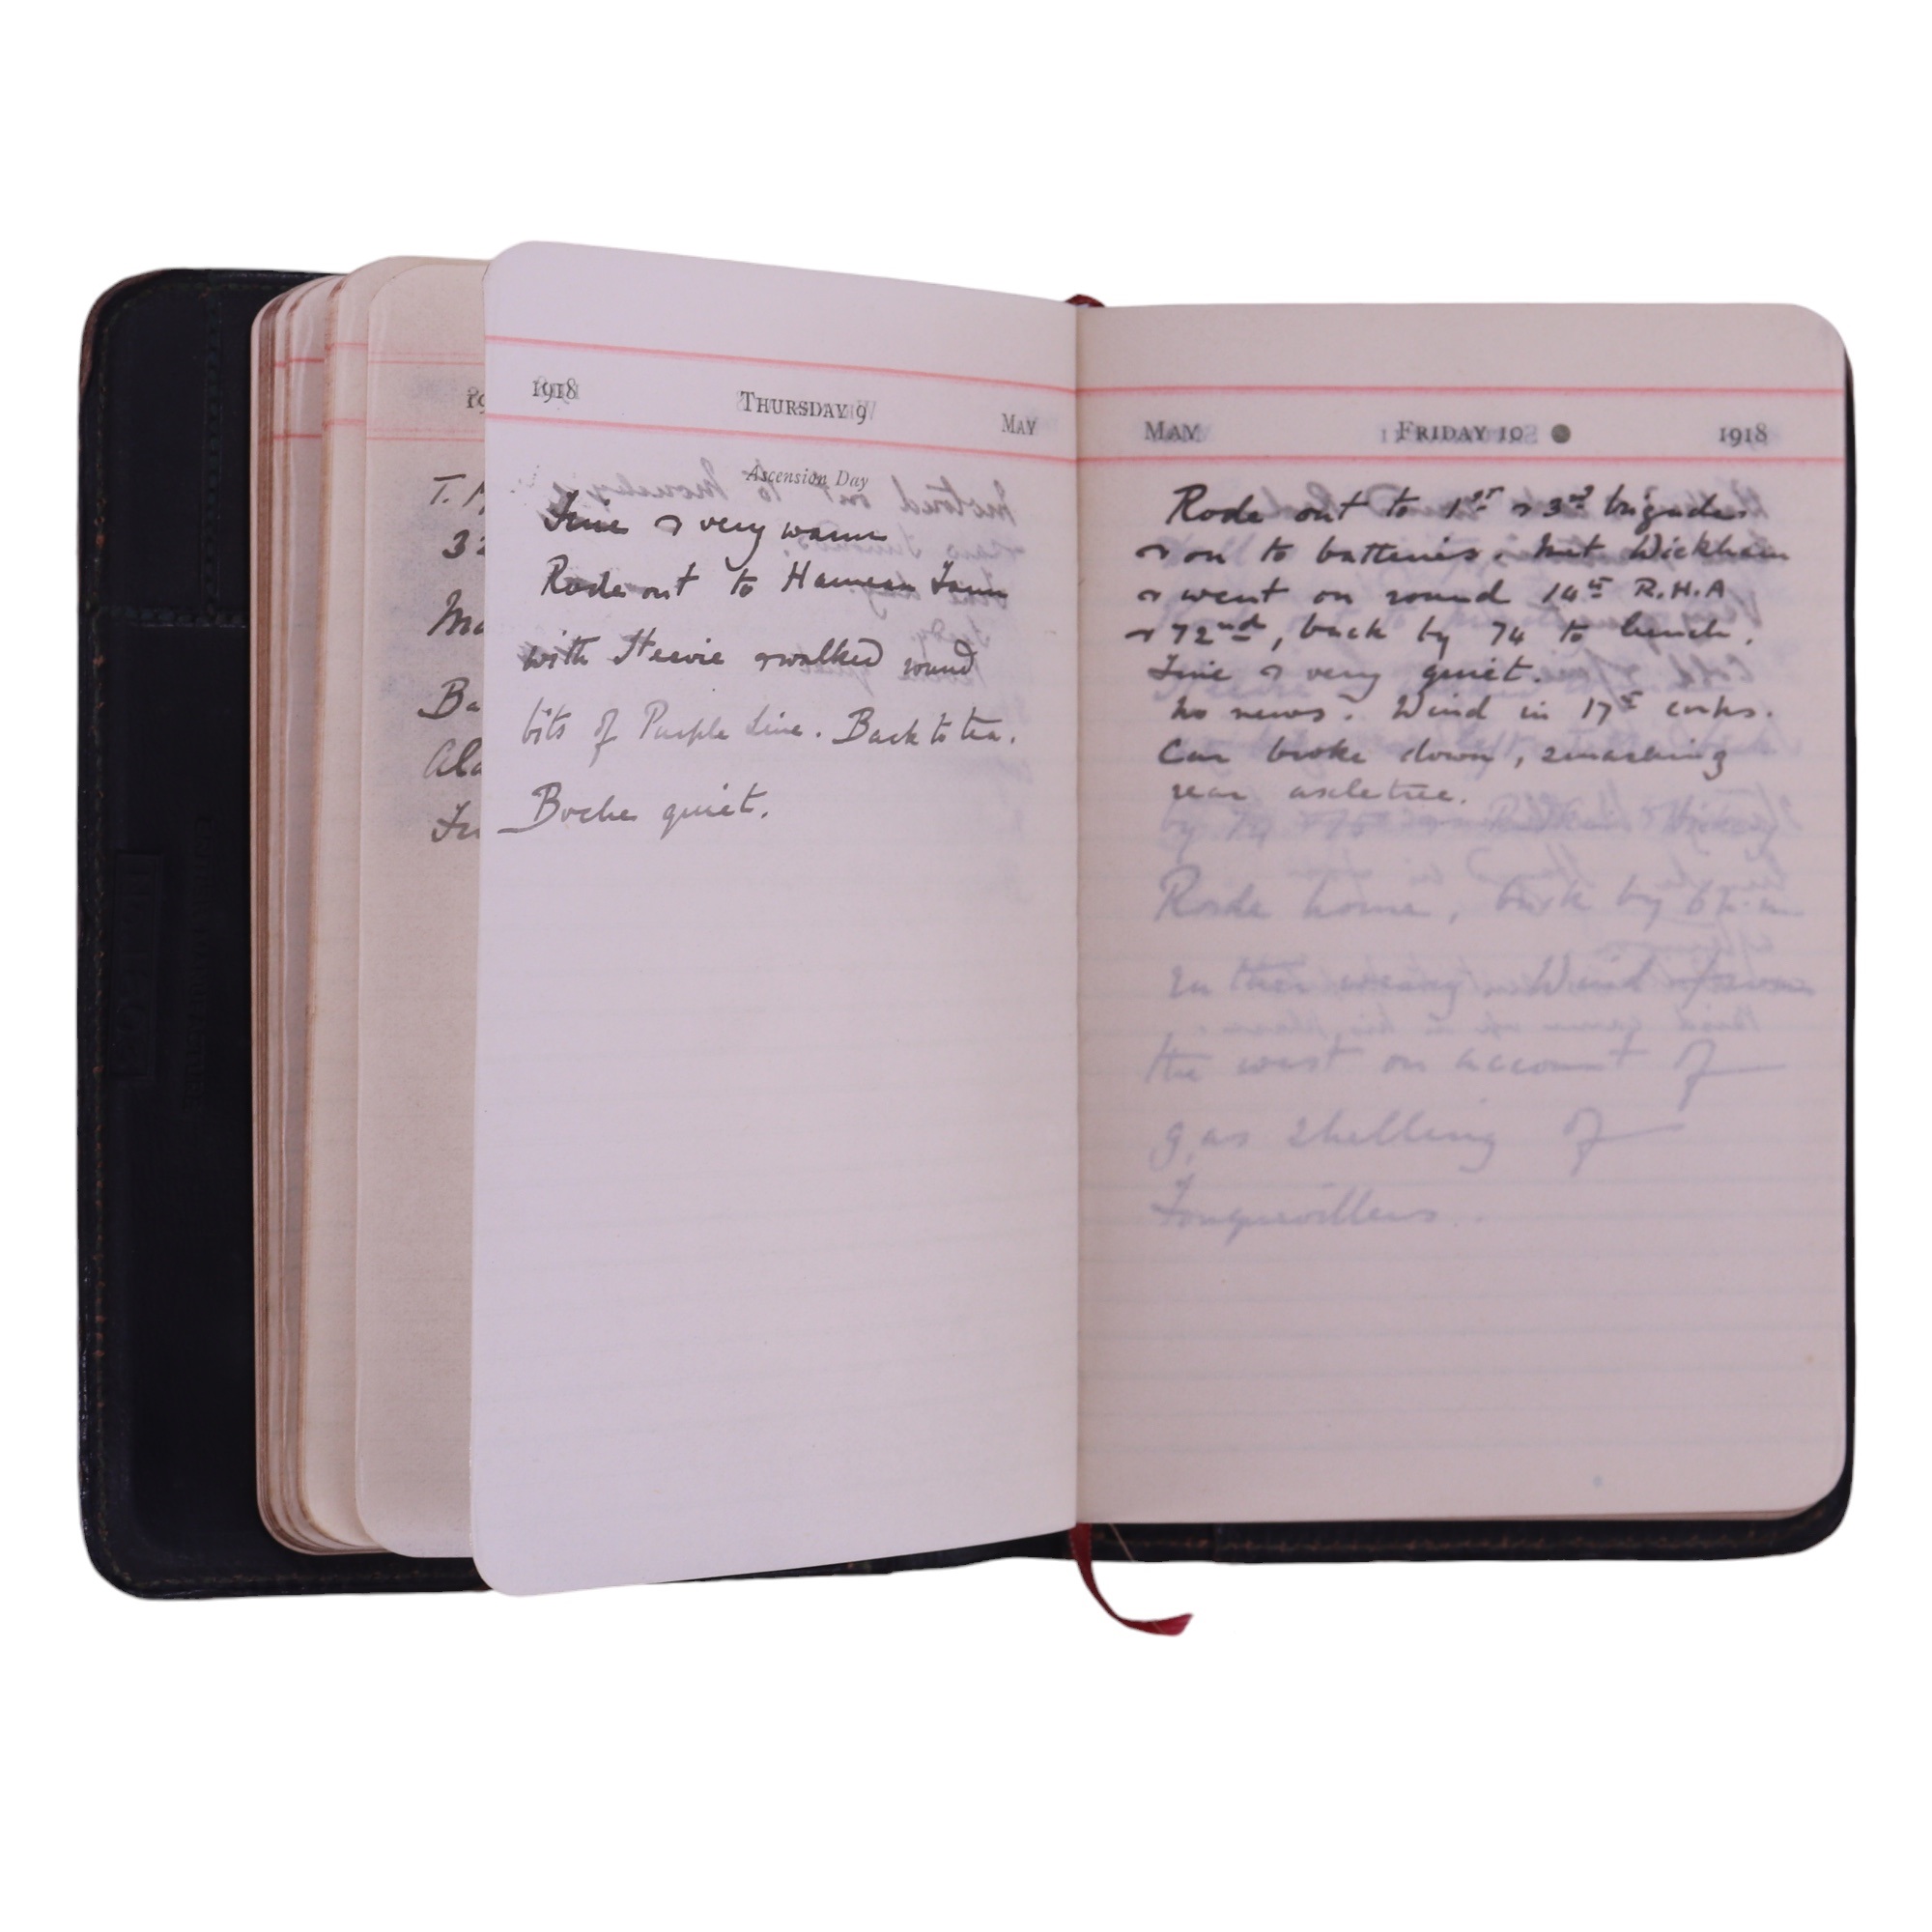 1918 THURSDAY 9 MAY
Ascension Day
Fine & very warm
Rode out to Hameau Farm
with Stevie & walked round
bits of Purple Line. Back to tea.
Boche quiet.
MAY FRIDAY 10 1918
Rode out to 1st & 3rd brigades
& on to batteries. Met Wickham
& went on round 14th R.H.A
& 72nd, back by 74 to lunch.
Fine & very quiet.
No news. Wind in 17th corps.
Car broke down, smashing
rear axletree.
by 74
Rode home, back by
the west on account of
gas shelling of
Fonquevillers.